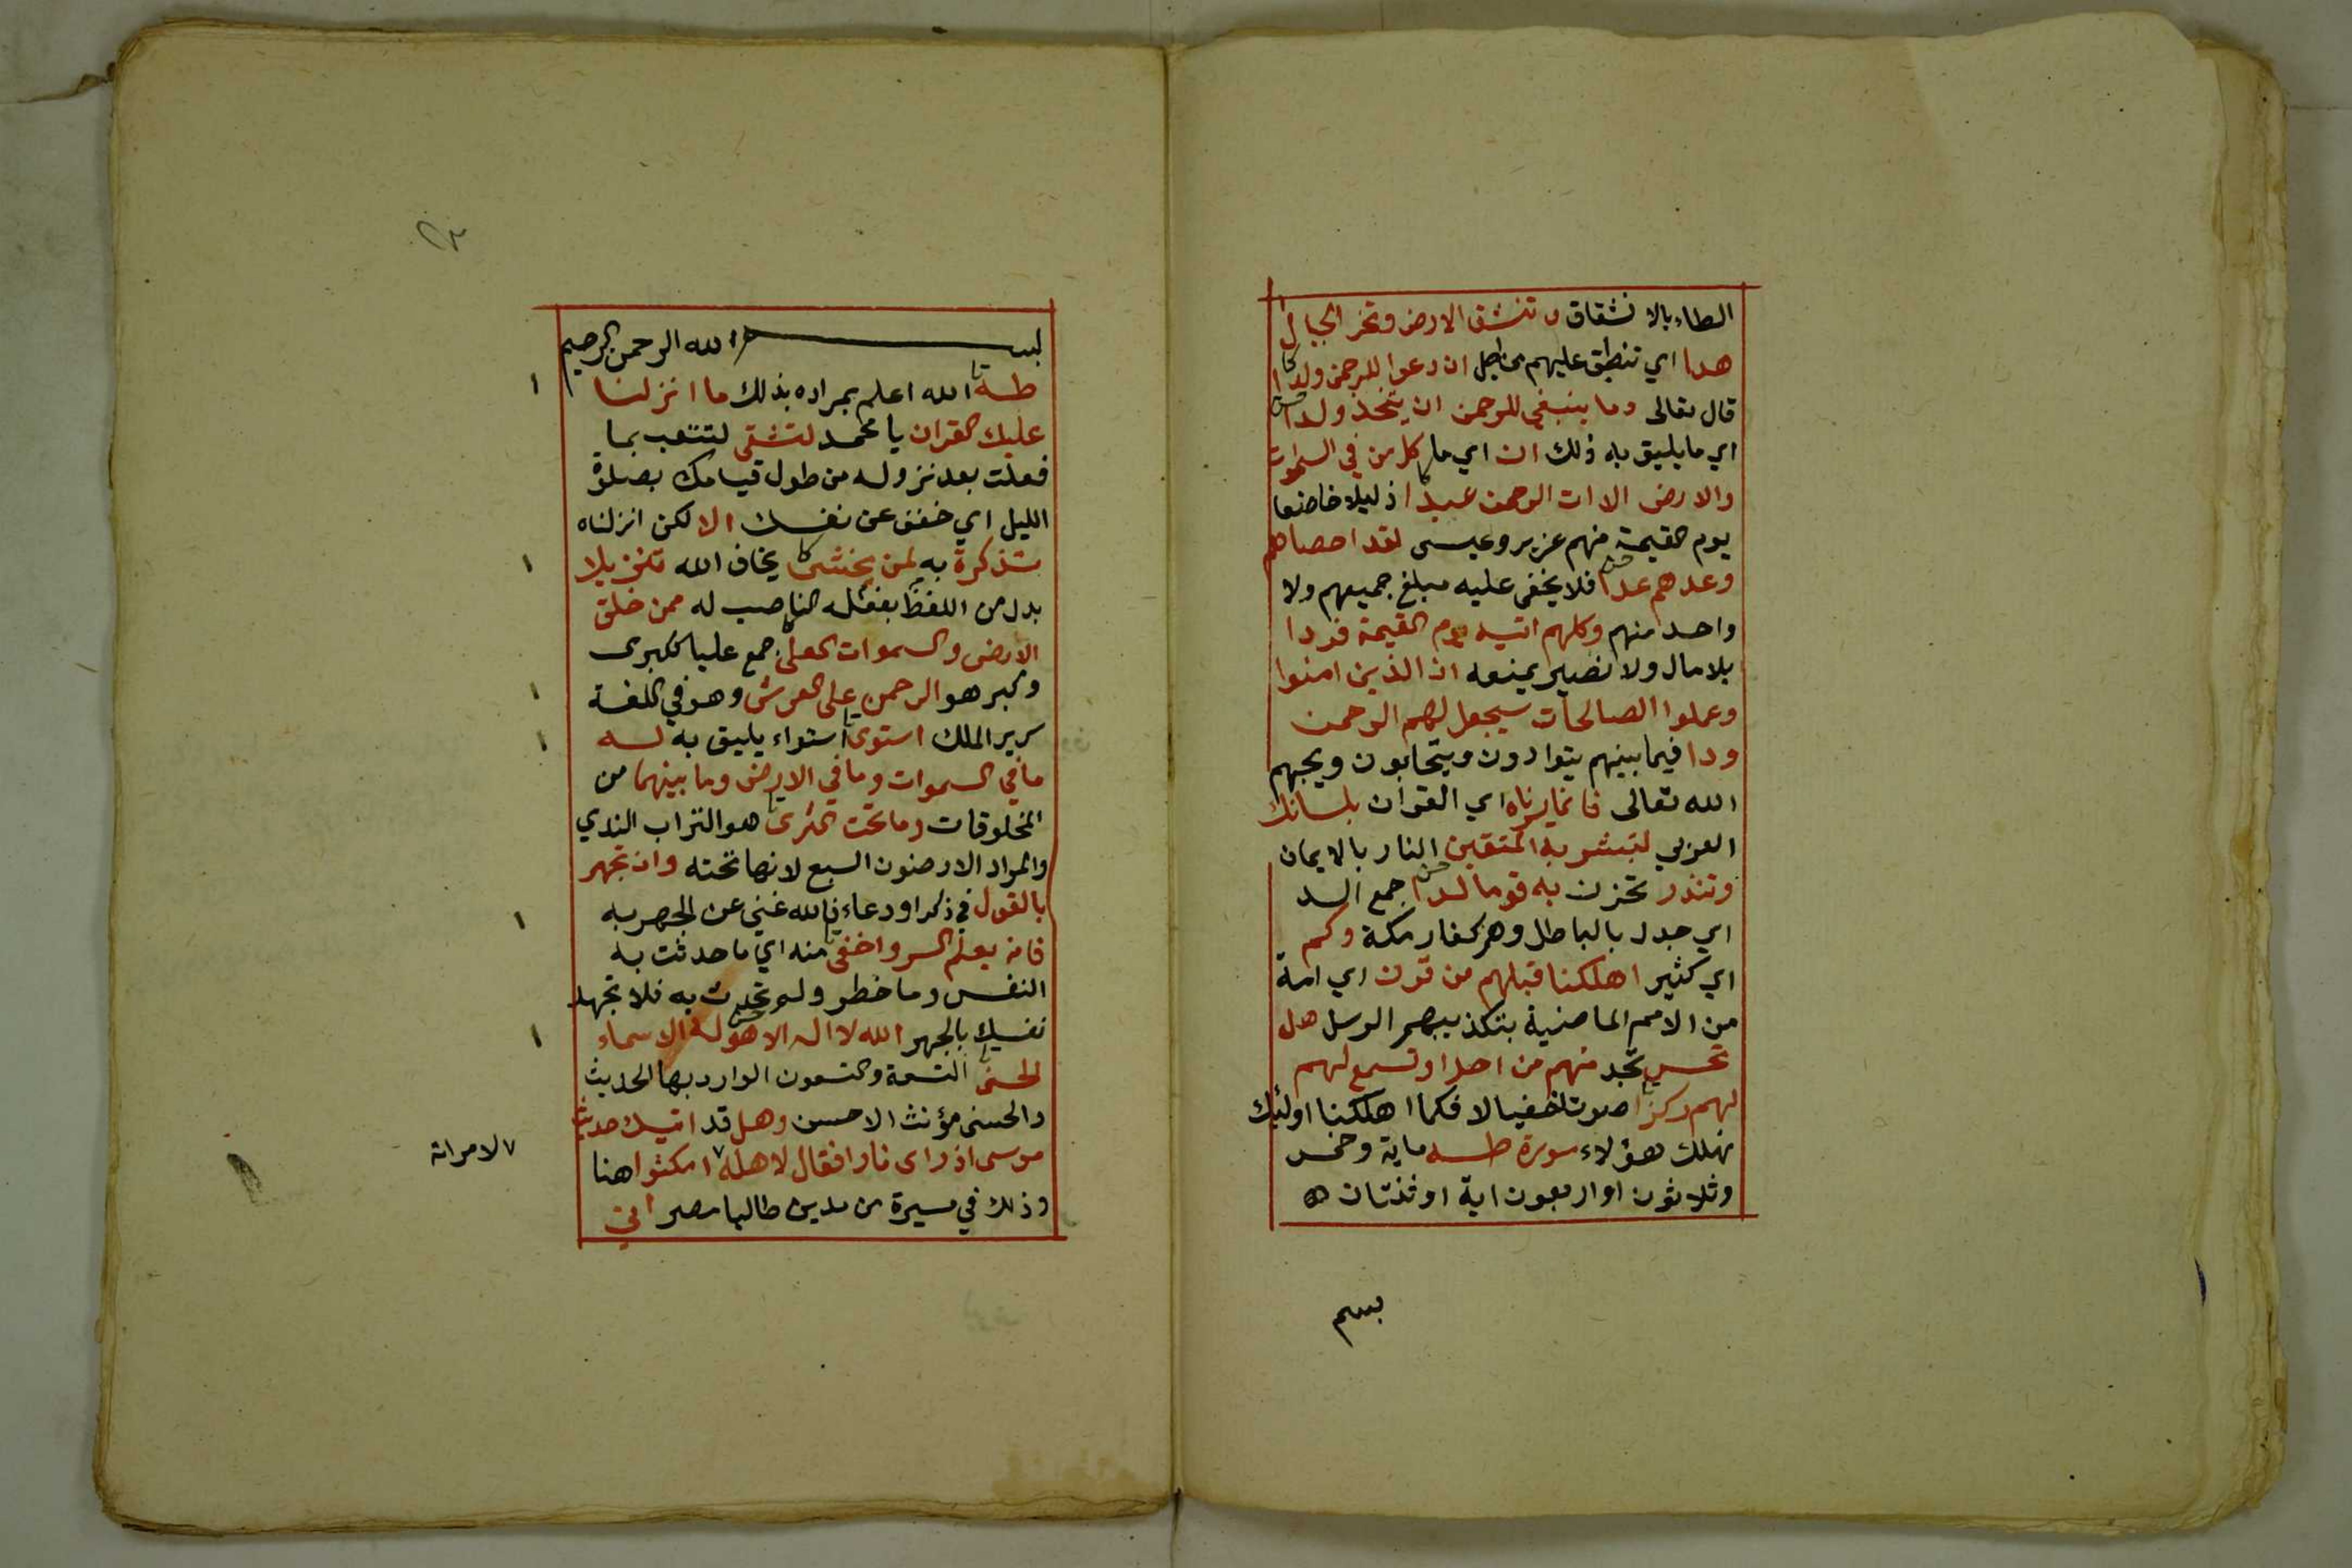 الطاء بالانشقاق وتنشق الارض وتخر الجبال
هدا اي تنطبق عليهم من اجل ان دعوا للرحمن ولدا
قال تعالى وما ينبغي للرحمن ان يتخذ ولدا
اي ما يليق به ذلك ان اي ما كل من في السموات
والارض الا ات الرحمن عبدا ذليلا خاضعا
يوم القيمة منهم عزير وعيسى لقد احصاهم
وعدهم عدا فلا يخفى عليه مبلغ جميعهم ولا
واحد منهم وكلهم اتيه يوم القيمة فردا
بلا مال ولا نصير يمنعه ان الذين امنوا
وعملوا الصالحات سيجعل لهم الرحمن
ودا فيما بينهم يتوادون ويتحابون ويحبهم
الله تعالى فانما يسرناه اي القران بلسانك
العربي لتبشر به المتقين النار بالايمان
وتنذر تحزن به قوما لدا جمع الد
اي جدل بالباطل وهم كفار مكة وكم
اي كثير اهلكنا قبلهم من قرن اي امة
من الامم الماضية بتكذيبهم الرسل هل
تحس تجد منهم من احد او تسمع لهم
لهم ركزا صوتا خفيا لا فكما اهلكنا اولئك
نهلك هؤلاء سورة طه ماية وخمس
وثلاثون او اربعون اية او ثنتان
بسم
بسم الله الرحمن الرحيم
طه الله اعلم بمراده بذلك ما انزلنا
عليك القران يا محمد لتشقى لتتعب بما
فعلت بعد نزوله من طول قيامك بصلوة
الليل اي خفف عن نفسك الا لكن انزلناه
تذكرة به لمن يخشى يخاف الله تنزيلا
بدل من اللفظ بفعله الناصب له ممن خلق
الارض والسموات العلى جمع عليا ككبرى
وكبر هو الرحمن على العرش وهو في اللغة
سرير الملك استوى استواء يليق به له
ما في السموات وما في الارض وما بينهما من
المخلوقات وما تحت الثرى هو التراب الندي
والمراد الارضون السبع لانها تحته وان تجهر
بالقول في ذكر او دعاء فالله غني عن الجهر به
فانه يعلم السر واخفى منه اي ما حدثت به
النفس وما خطر ولم تحدث به فلا تجهد
نفسك بالجهر الله لا اله الا هو له الاسماء
الحسنى التسعة والتسعون الوارد بها الحديث
والحسنى مؤنث الاحسن وهل قد اتيك حديث
موسى اذ راى نارا فقال لاهله ٧ امكثوا هنا
٧ لامراته
وذلك في مسيرة من مدين طالبا مصر اني